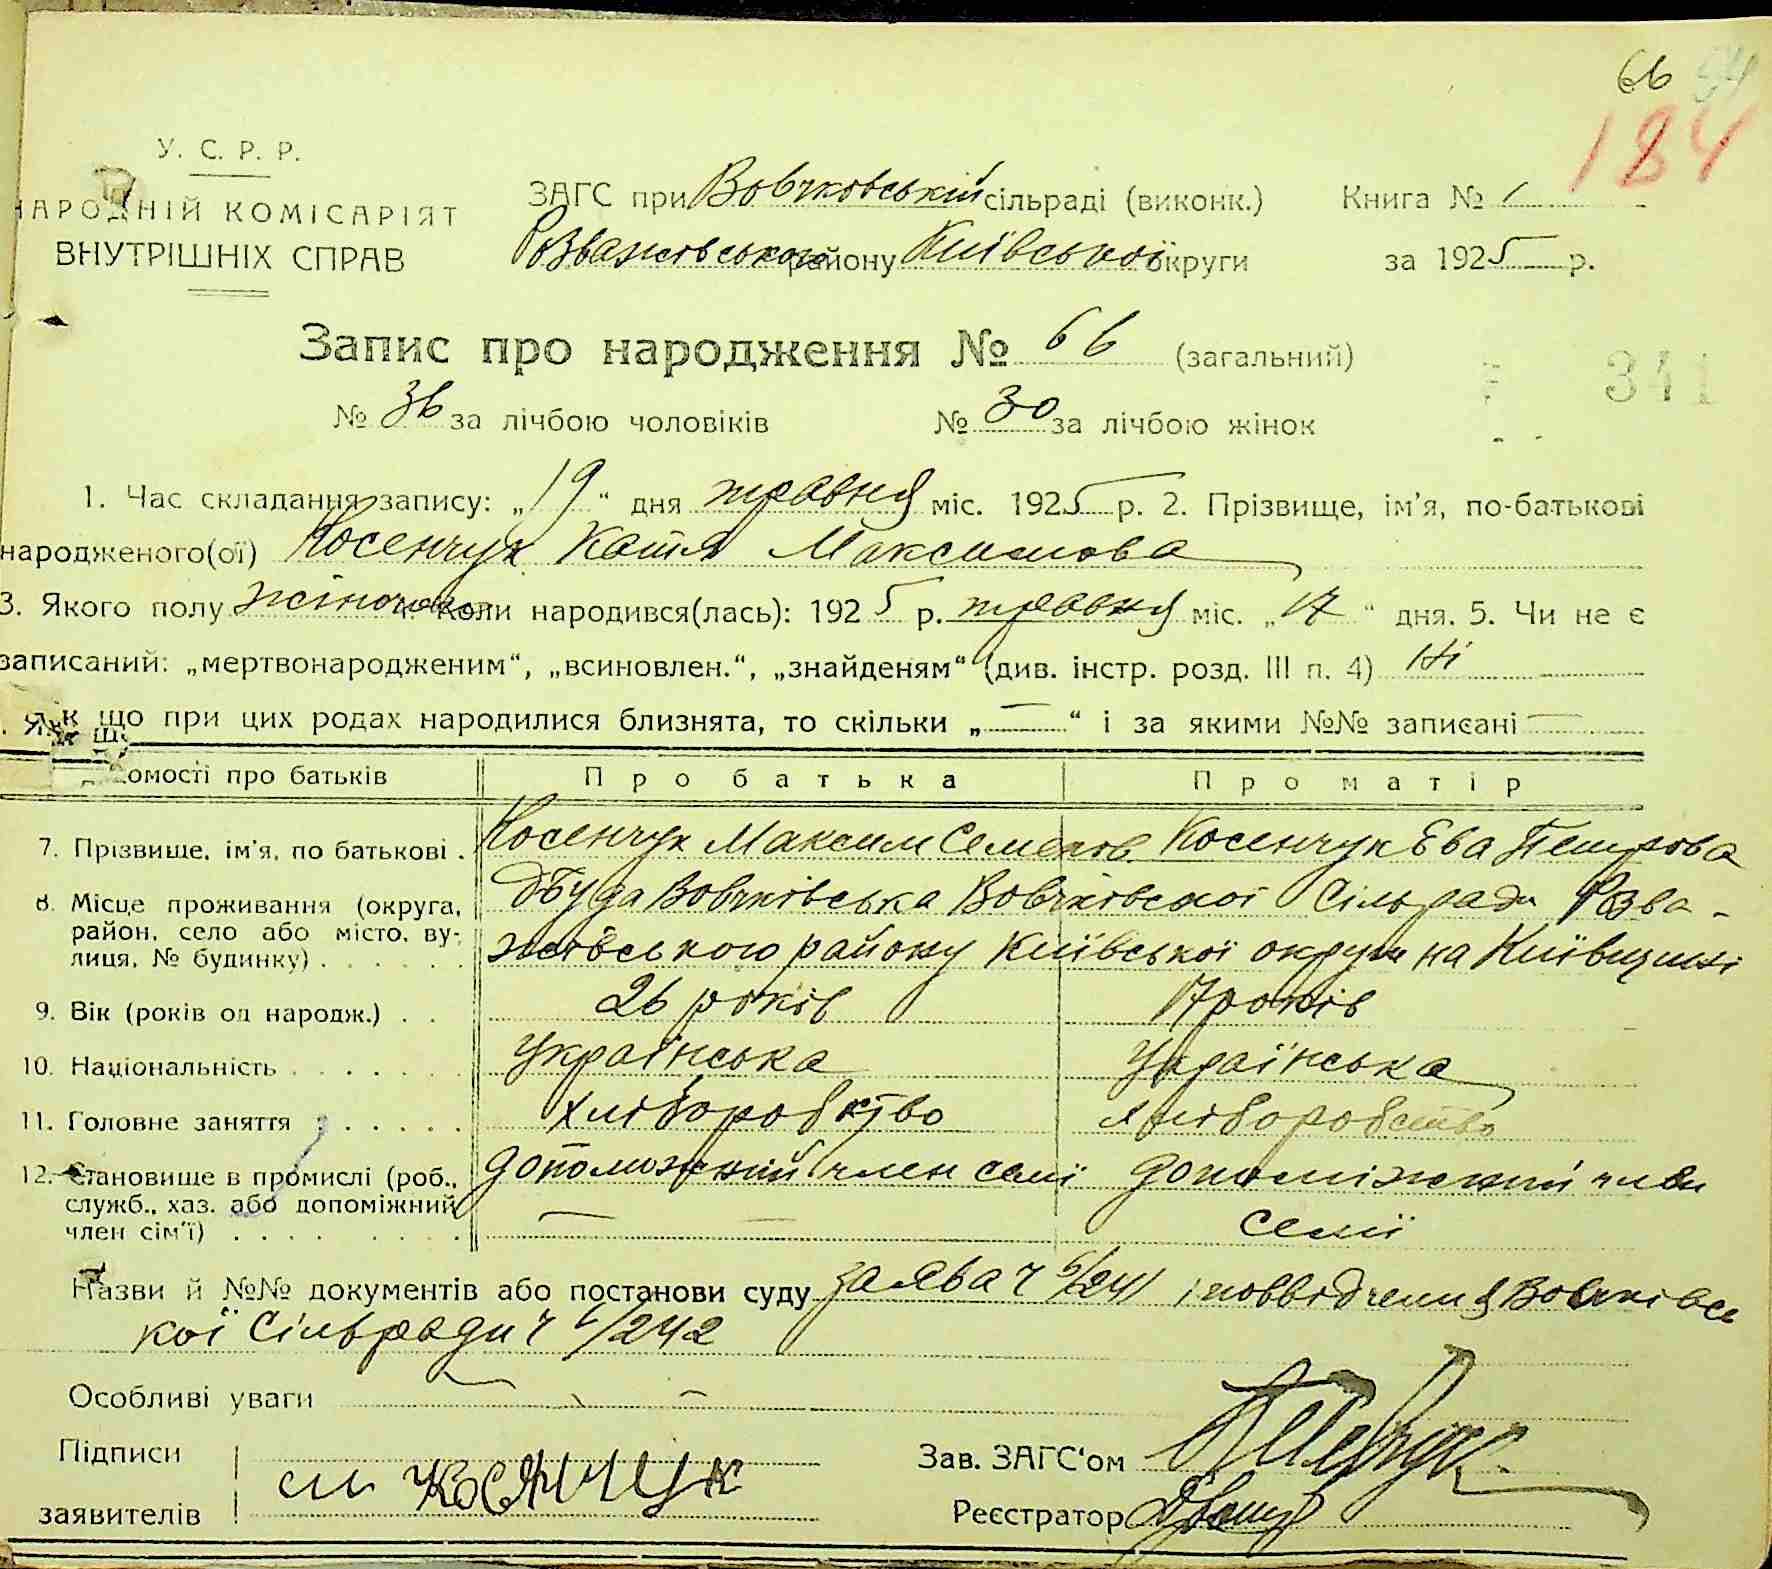 66 94
184
У. С. Р. Р.
НАРОДНІЙ КОМІСАРІЯТ
ВНУТРІШНІХ СПРАВ
ЗАГС при Вовчковській сільраді (виконк.) Книга № 1
Розважівського району Київської округи за 1925 р.
Запис про народження № 66 (загальний)
341
№ 36 за лічбою чоловіків № 30 за лічбою жінок
1. Час складання запису: „19“ дня травня міс. 1925 р. 2. Прізвище, ім'я, по-батькові
народженого(ої) Косенчук Катя Максимова
3. Якого полу жіночого 4. Коли народився(лась): 1925 р. травня міс. „17“ дня. 5. Чи не є
записаний: „мертвонародженим“, „всиновлен.“, „знайденям“ (див. інстр. розд. III п. 4) Ні
. Як що при цих родах народилися близнята, то скільки „—“ і за якими №№ записані —
омості про батьків Про батька Про матір
7. Прізвище, ім'я, по батькові . Косенчук Максим Семенов Косенчук Ева Петрова
8. Місце проживання (округа, район, село або місто, вулиця, № будинку) . . . . . .
Буда Вовчківська Вовчківської Сільради Розва-
жівського району Київської округи на Київщині
9. Вік (років од народж.) . . 26 років 17 років
10. Національність . . . . . . . українська українська
11. Головне заняття . . . . . . хліборобство хліборобство
12. Становище в промислі (роб., допоміжний член семї допоміжний член
служб., хаз. або допоміжний — — семії
член сім'ї) . . . . . . . . .
Назви й №№ документів або постанови суду заява ч 6/241 і поввідчення Вовчківсь
кої Сільради ч 6/242
Особливі уваги —
Підписи Зав. ЗАГС'ом
заявителів м косячук Реєстратор